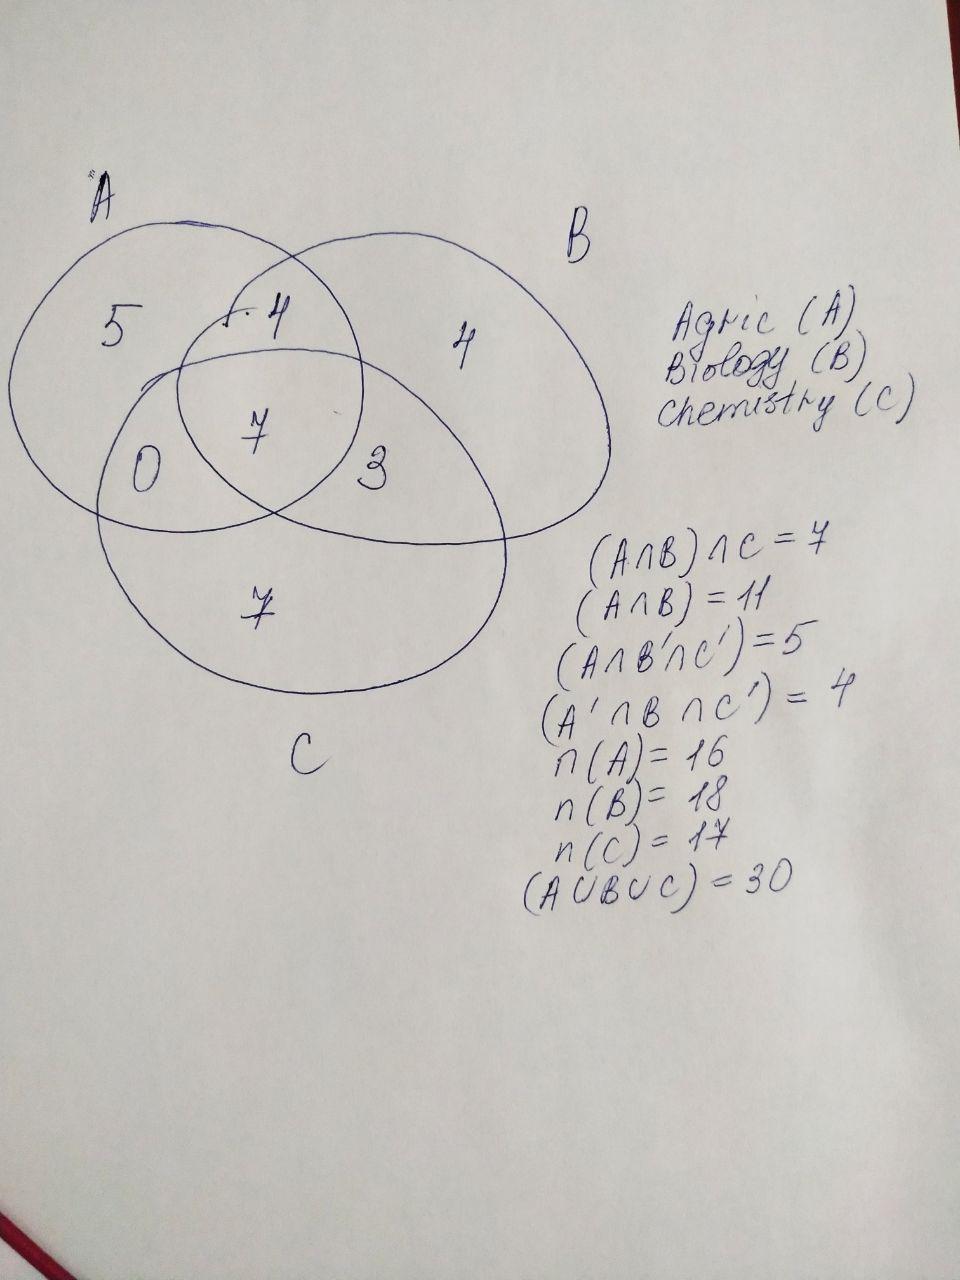 A
B
5
4
4
7
0
3
7
C
Agric (A)
Biology (B)
Chemistry (C)
(A∩B)∩C = 7
(A∩B) = 11
(A∩B'∩C') = 5
(A'∩B∩C') = 4
n(A) = 16
n(B) = 18
n(C) = 17
(A∪B∪C) = 30